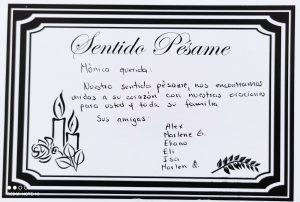 Sentido Pésame
Mónica querida:
Nuestro sentido pésame, nos encontramos
unidos a su corazón con nuestras oraciones
para usted y toda su familia
Sus amigos:
Alex
Marlene G.
Eliana
Eli
Isa
Marlen